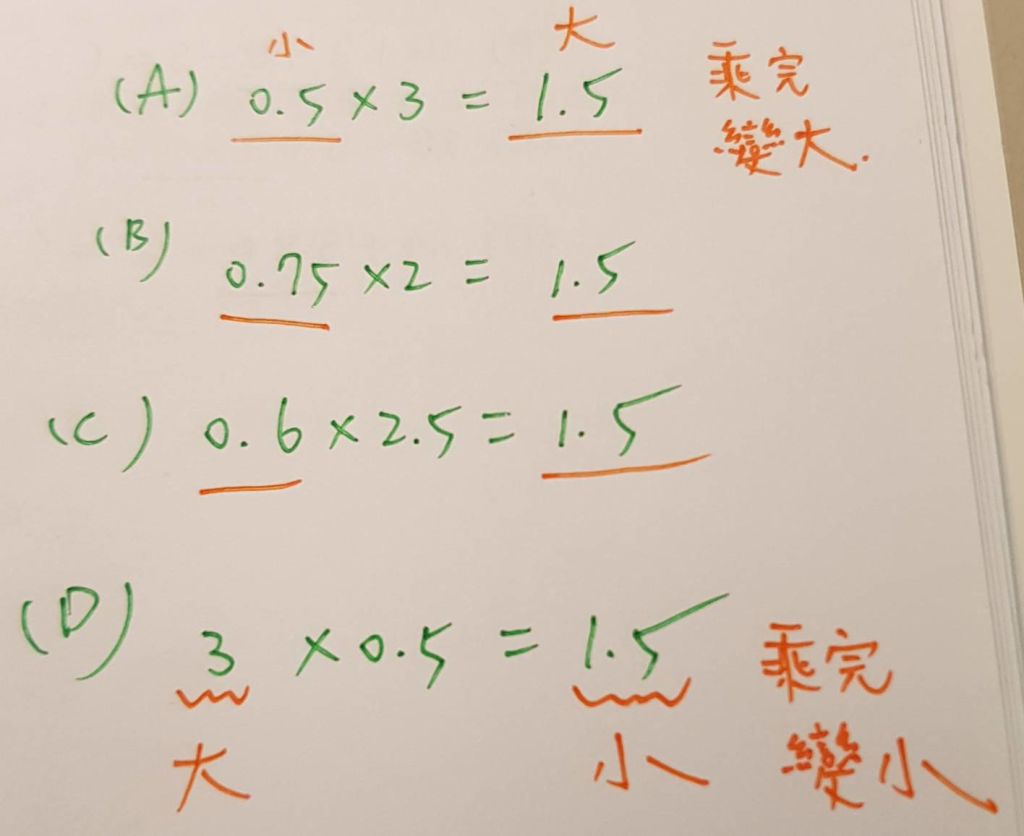 小 大
(A) 0.5 × 3 = 1.5 乘完
變大.
(B) 0.75 × 2 = 1.5
(C) 0.6 × 2.5 = 1.5
(D) 3 × 0.5 = 1.5 乘完
大 小 變小